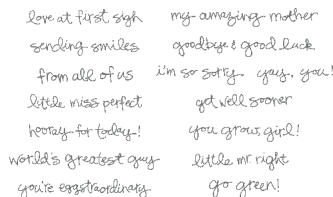 love at first sigh
sending smiles
from all of us
little miss perfect
hooray for today!
world's greatest guy
you're eggstraordinary
my amazing mother
goodbye & good luck
i'm so sorry. yay, you!
get well sooner
you grow, girl!
little mr right
go green!